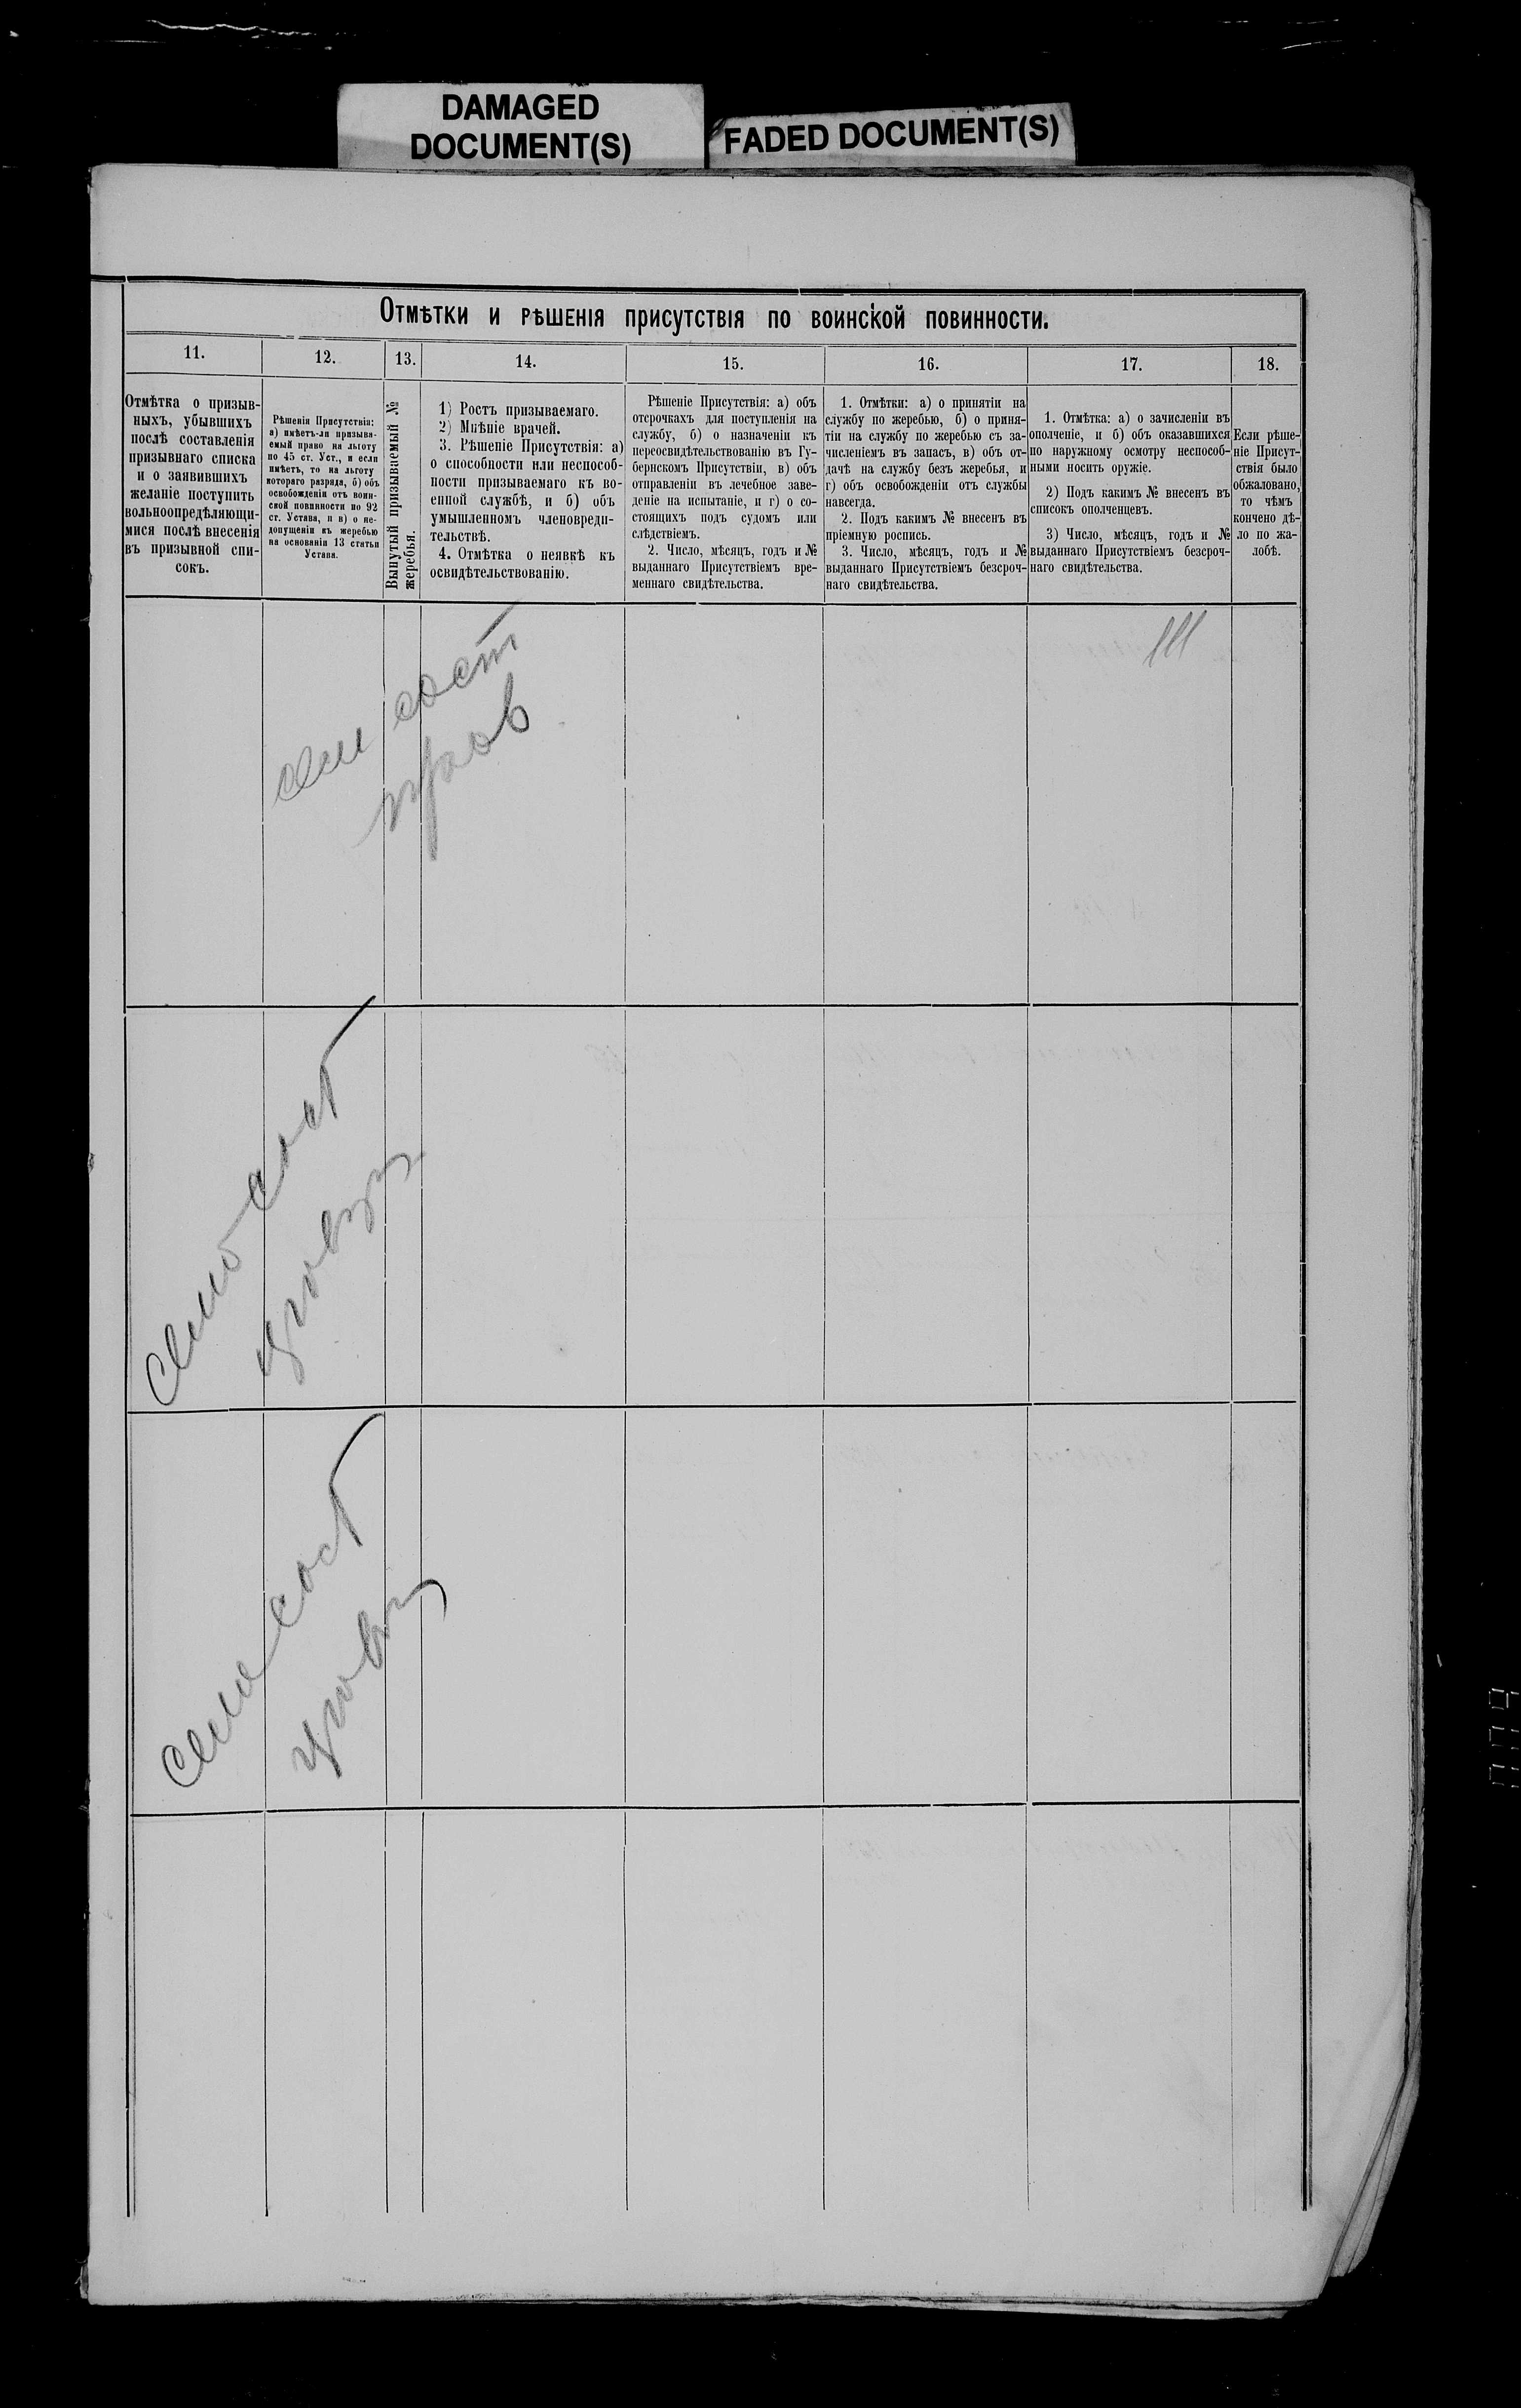 DAMAGED
DOCUMENT(S)
FADED DOCUMENT(S)
Отмѣтки и рѣшенія присутствія по воинской повинности.
11.
12.
13.
14.
15.
16.
17.
18.
Отмѣтка о призыв-
ныхъ, убывшихъ
послѣ составленія
призывнаго списка
и о заявившихъ
желаніе поступить
вольноопредѣляющи-
мися послѣ внесенія
въ призывной спи-
сокъ.
Рѣшенія Присутствія:
а) имѣетъ-ли призыва-
емый право на льготу
по 45 ст. Уст., и если
имѣетъ, то на льготу
котораго разряда, б) объ
освобожденіи отъ воин-
ской повинности по 92
ст. Устава, и в) о не-
допущеніи къ жеребью
на основаніи 13 статьи
Устава.
Вынутый призываемый №
жеребья.
1) Ростъ призываемаго.
2) Мнѣніе врачей.
3. Рѣшеніе Присутствія: а)
о способности или неспособ-
ности призываемаго къ во-
енной службѣ, и б) объ
умышленномъ членовреди-
тельствѣ.
4. Отмѣтка о неявкѣ къ
освидѣтельствованію.
Рѣшеніе Присутствія: а) объ
отсрочкахъ для поступленія на
службу, б) о назначеніи къ
переосвидѣтельствованію въ Гу-
бернскомъ Присутствіи, в) объ
отправленіи въ лечебное заве-
деніе на испытаніе, и г) о со-
стоящихъ подъ судомъ или
слѣдствіемъ.
2. Число, мѣсяцъ, годъ и №
выданнаго Присутствіемъ вре-
меннаго свидѣтельства.
1. Отмѣтки: а) о принятіи на
службу по жеребью, б) о приня-
тіи на службу по жеребью съ за-
численіемъ въ запасъ, в) объ от-
дачѣ на службу безъ жеребья, и
г) объ освобожденіи отъ службы
навсегда.
2. Подъ какимъ № внесенъ въ
пріемную роспись.
3. Число, мѣсяцъ, годъ и №
выданнаго Присутствіемъ безсроч-
наго свидѣтельства.
1. Отмѣтка: а) о зачисленіи въ
ополченіе, и б) объ оказавшихся
по наружному осмотру неспособ-
ными носить оружіе.
2) Подъ какимъ № внесенъ въ
списокъ ополченцевъ.
3) Число, мѣсяцъ, годъ и №
выданнаго Присутствіемъ безсроч-
наго свидѣтельства.
Если рѣше-
ніе Присут-
ствія было
обжаловано,
то чѣмъ
кончено дѣ-
ло по жа-
лобѣ.
сем сост
сост
сем сост